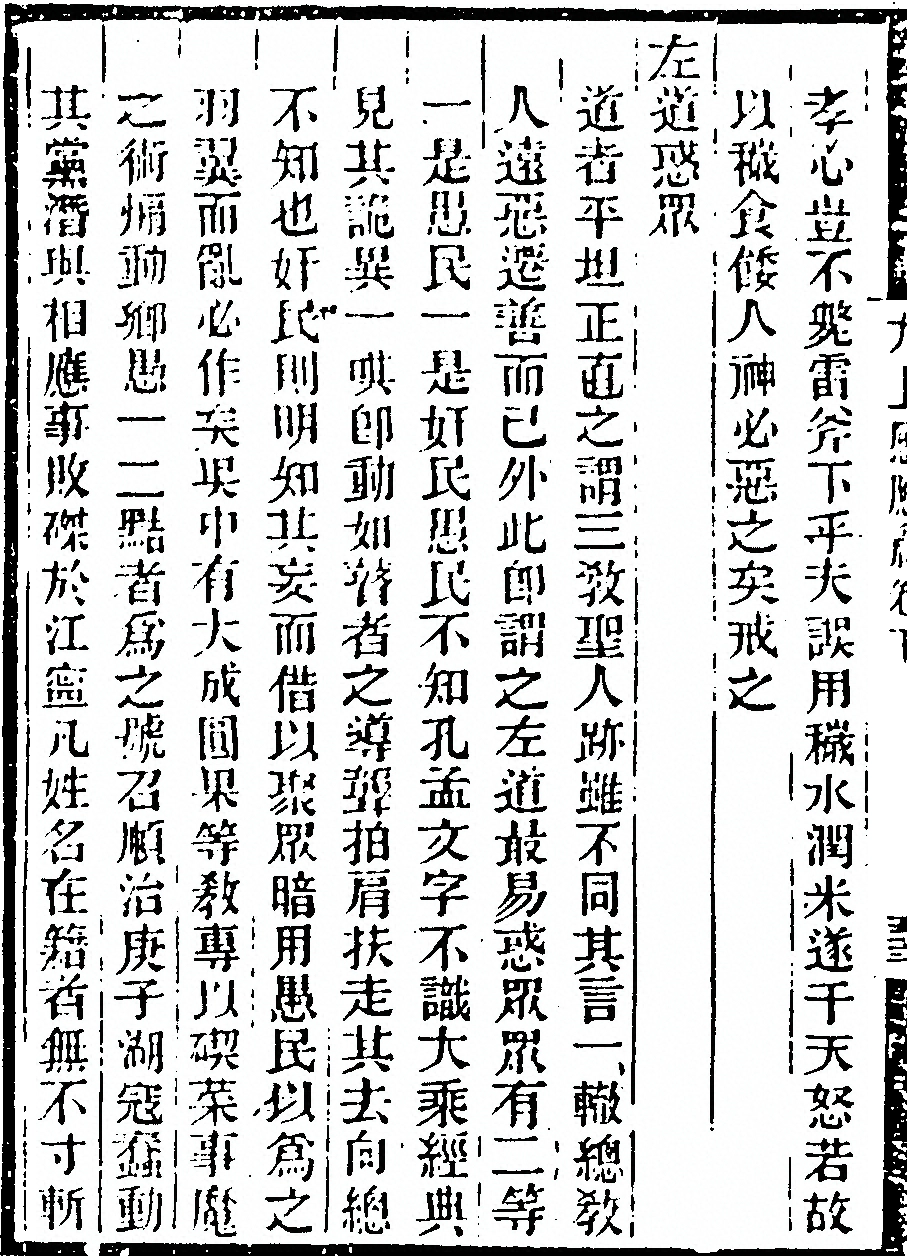 孝心豈不斃雷斧下乎夫誤用穢水潤米遂干天怒若故
以穢食餧人神必惡之矣戒之
左道惑眾
道者平坦正直之謂三教聖人跡雖不同其言一轍總教
人遠惡遷善而已外此卽謂之左道最易惑眾眾有二等
一是愚民一是奸民愚民不知孔孟文字不識大乘經典
見其詭異一哄卽動如瞽者之導瞽拍肩扶走其去向總
不知也奸民則明知其妄而借以聚眾暗用愚民以爲之
羽翼而亂必作矣吳中有大成圓果等教專以喫菜事魔
之術煽動鄉愚一二黠者爲之號召順治庚子湖寇蠢動
其黨潛與相應事敗磔於江寧凡姓名在籍者無不寸斬